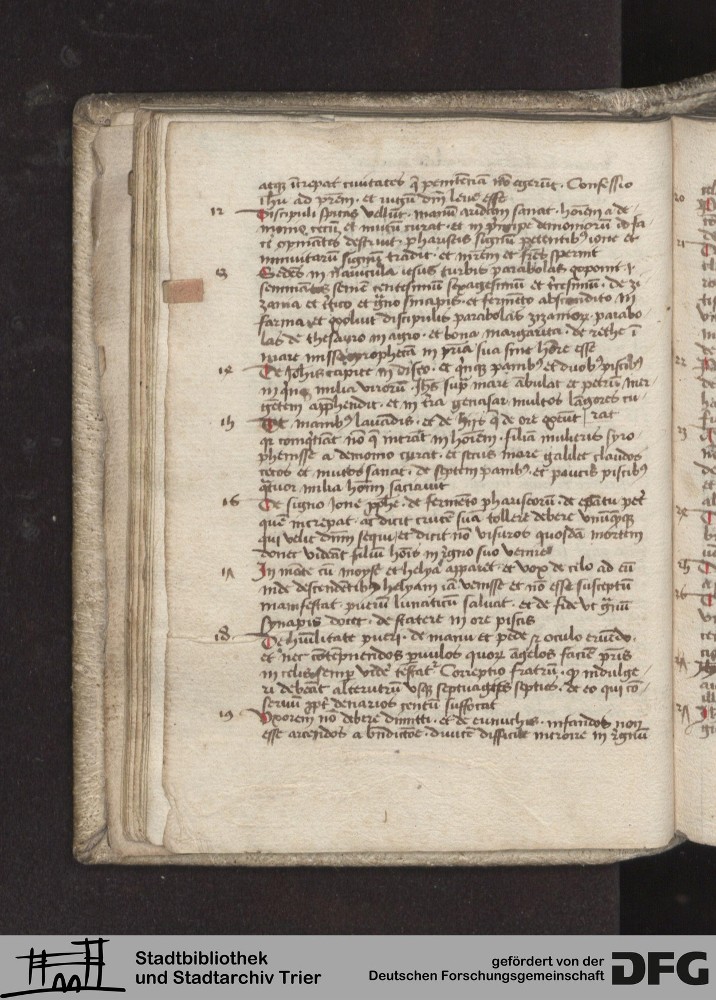 atqꝫ increpat ciuitates q̄ penitēciā nō egerūt · Confessio
ihu ad prēm · et iugū dnī leue esse
12 Discipuli spicas vellūt · manū aridam sanat · hoīem a de
monio cecū et mutū curat · et in principe demoniorū
opinātes destruit · phariseis signū petentibꝰ ione et
niniuitarū signū tradit · et mrēm et frēs spernit
13 Sedēs in nauicula iesus turbis parabolas
seminātis semē centesimū sexagesimū et tricesimū · de zi
zania et tritico et grano sinapis · et fermēto abscondito in
farina et soluit discipulis parabolas zizaniorꝫ · parabo
las de thesauro in agro · et bona margarita · de rethe in
mare misso · prophetā in pria sua sine honore esse
14 De Iohis capite in disco · et quinqꝫ panibꝰ et duobꝰ piscibꝰ
in quinqꝫ milia virorū · Ihs supra mare ābulat et petrū mer
gētem apphendit · et in terra genasar multos lāgores cu
15 De manibꝰ lauādis · et de hijs q̄ de ore exeūt / rat
coinquināt nō q̄ intrāt in hoīem · filia mulieris syro
phenisse a demonio curat · et secus mare galilee claudos
cecos et mutos sanat · de septem panibꝰ et paucis piscibꝰ
quatuor milia hoīm saciauit
16 De signo Ione pphe · de fermēto phariseorū · de petri
quē increpat · ac dicit crucē suā tollere debere vnūquēqꝫ
qui velit dnm sequi et dicit nō visuros quosdā mortem
donec videāt filiū hois in regno suo veniētē
17 In mōte cū moyse et helya apparet · et vox de celo ad eū
inde descendētibꝰ helyam iā venisse et nō esse susceptū
manifestat · puerū lunaticū saluat · et de fide vt granū
synapis docet · de statere in ore piscis
18 De humilitate pueri · de manu et pede et oculo eruēdo ·
et nec cōtēpnendos puulos quorꝫ angelos faciē pris
in celis semper videre testat · Correptio fratrū · indulge
ri debeāt alterutrū vsqꝫ septuagies septies · de eo qui cō
seruū ppt denarios centū suffocat
19 Vxorem nō debere dimitti · et de eunuchis · infantes non
esse arcendos a bndictōe · diuitē difficile introire in regnū
Stadtbibliothek
und Stadtarchiv Trier
gefördert von der
Deutschen Forschungsgemeinschaft
DFG